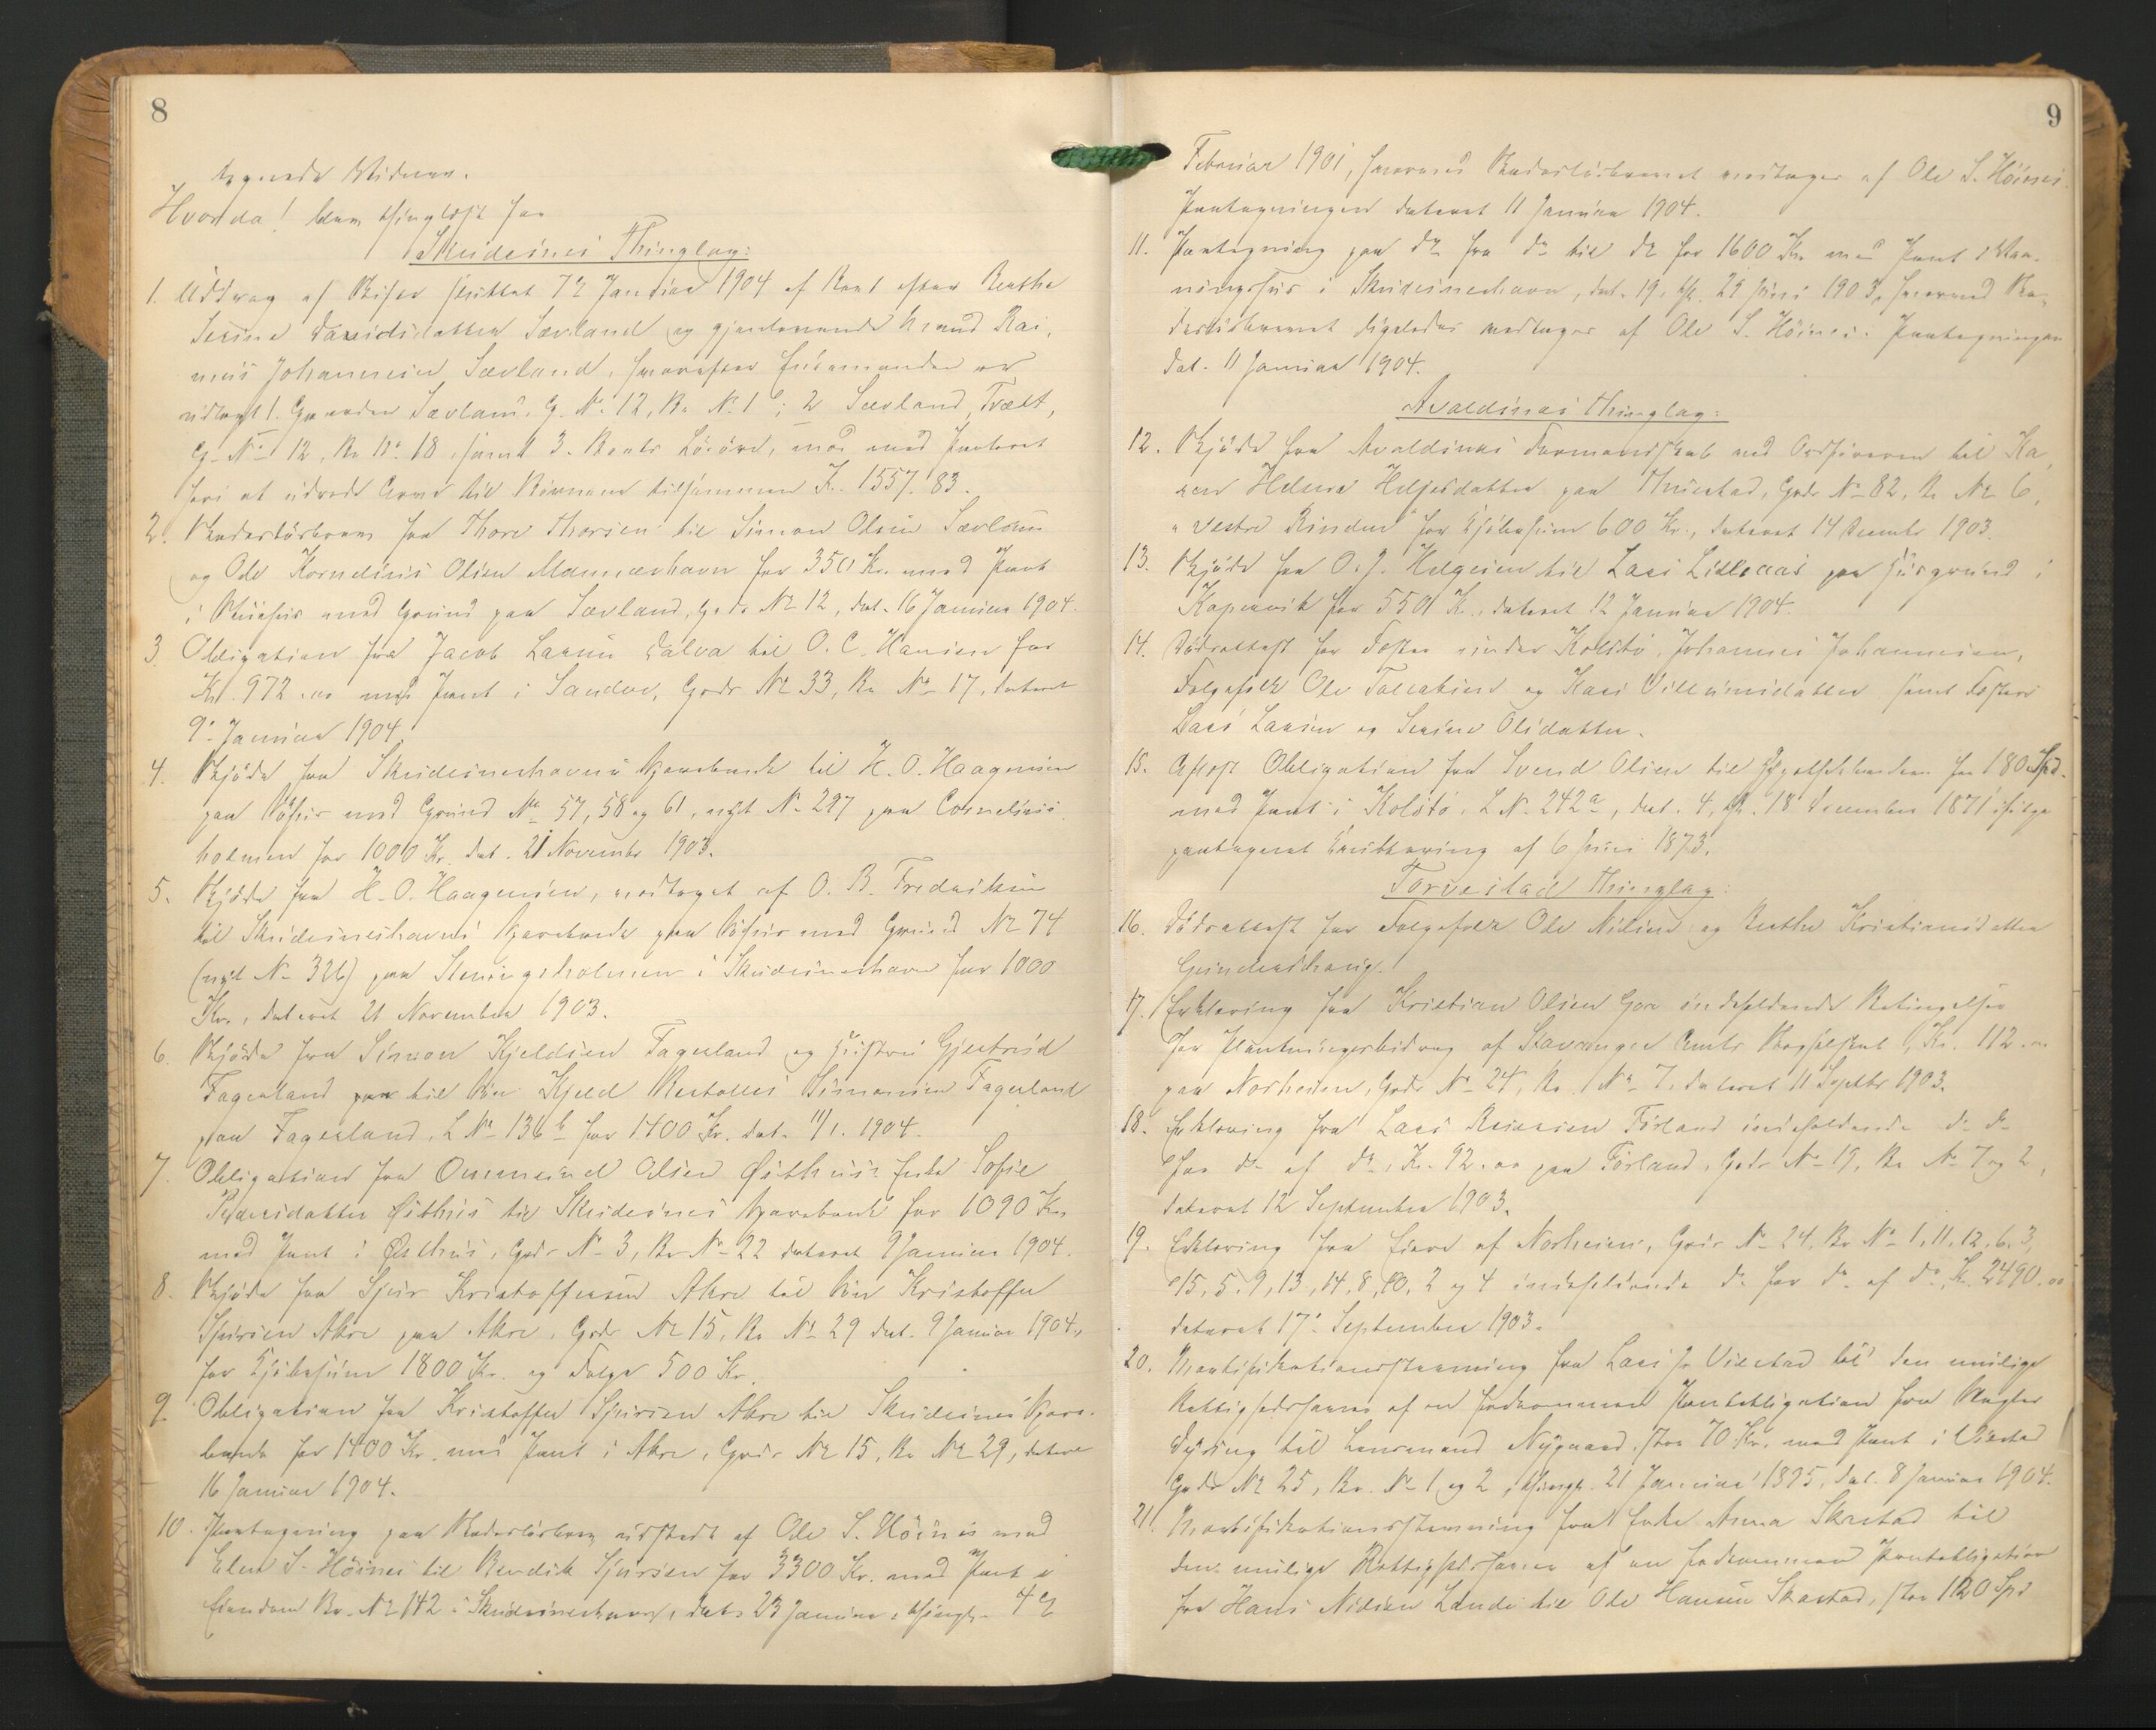 8
tegnede Vidner.
Hvorda! blev thinglæst for
Skudesnes Thinglag:
1. Uddrag af Skifte sluttet 7de Januar 1904 af Boet efter Berthe
Serine Davidsdatter Sævland og gjenlevende Mand Ras-
mus Johannesen Sævland, hvorefter Enkemanden er
udlagt 1. Gaarden Sævland, G. No. 12, Br. No. 1 b; 2 Sævland, Træet,
G. No. 12, Br. No. 18, samt 3. Boets Løsøre, mod med Panteret
heri at udrede Arve til Børnene tilsammen K. 1557.83.
2. Skadesløsbrev fra Thore Thorsen til Simon Olsen Sævland
og Ole Kornelius Olsen Mannæshavn for 350 Kr. med Pant
i Vaahus med Grund paa Sævland, Grds No. 12, dat. 16 Januar 1904.
3. Obligation fra Jacob Larsen Dalva til O. C. Hansen for
Kr. 972.00 med Pant i Sandve, Grds No. 33, Br. No. 17, dateret
9. Januar 1904.
4. Skjøde fra Skudesneshavns Sparebank til H. O. Haagensen
paa Søhus med Grund No. 57, 58 og 61, nyt No. 297 paa Cornelius-
holmen for 1000 Kr. dat. 21 November 1903.
5. Skjøde fra H. O. Haagensen, medtaget af O. B. Fredriksen
til Skudesneshavns Sparebank paa Søhus med Grund No. 74
(nyt No. 326) paa Steiningsholmen i Skudesneshavn for 1000
Kr., dateret 21 November 1903.
6. Skjøde fra Simon Kjeldsen Fagerland og Hustru Gjertrud
Fagerland paa til Søn Kjeld Simonsen Fagerland
paa Fagerland, L. No. 136 b for 1400 Kr. dat. 11/1. 1904.
7. Obligation fra Ommund Olsen Østhus' Enke Sofie
Pedersdatter Østhus til Skudesnes Sparebank for 1090 Kr.
med Pant i Østhus, Grds No. 3, Br. No. 22 dateret 9 Januar 1904.
8. Skjøde fra Sjur Kristoffersen Akre til Søn Kristoffer
Sjursen Akre paa Akre, Grds No. 15, Br. No. 29 dat. 9 Januar 1904,
for Kjøbesum 1800 Kr. og Folge 500 Kr.
9. Obligation fra Kristoffer Sjursen Akre til Skudesnes Spare-
bank for 1400 Kr. med Pant i Akre, Grds No. 15, Br. No. 29, dateret
16 Januar 1904.
10. Paategning paa Skadesløsbrev udstedt af Ole S. Høines med
Elen S. Høines til Bendik Sjursen for 3300 Kr. med Pant i
Eiendom Br. No. 142 i Skudesneshavn, dat. 23 Januar, thingl. 4de
9
Februar 1901, hvorved Skadesløsbrevet medtages af Ole S. Høines.
Paategningen dateret 11 Januar 1904.
11. Paategning paa do. fra do. til do. for 1600 Kr. med Pant i Vaa-
ningshus i Skudesneshavn, dat. 19, thl. 29 Juni 1903, hvorved Ska-
desløsbrevet ligeledes medtages af Ole S. Høines. Paategningen
dat. 11 Januar 1904.
Avaldsnes Thinglag:
12. Skjøde fra Avaldsnes Formandskab ved Ordføreren til Ka-
ren Helene Heljesdatter paa Thuestad, Grds No. 82, Br. No. 6,
"Vestre Rinden" for Kjøbesum 600 Kr., dateret 14 Decembr 1903.
13. Skjøde fra O. J. Helgesen til Lars Lilleaas paa Husgrund i
Kopervik for 550 K., dateret 12 Januar 1904.
14. Dødsattest for Fæster under Kolstø, Johannes Johannesen,
Folgefolk Ole Tollaksen og Kari Villumsdatter samt Fæster
Lars Larsen og Serine Olsdatter.
15. Aflæst Obligation fra Svend Olsen til for 180 Spd.
med Pant i Kolstø, L. No. 242 a, dat. 4, thl. 18 December 1871 ifølge
paategnet Kvittering af 6 Juni 1873.
Torvestad Thinglag:
16. Dødsattest for Folgefolk Ole Nilsen og Berthe Kristiansdatter
Gundershaug.
17. Erklæring fra Kristian Olsen Gore indeholdende Betingelser
for Plantningsbidrag af Stavanger Amts Skogselskab, Kr. 112.00
paa Norheim, Grds No. 24, Br. No. 7, dateret 11 Septbr 1903.
18. Erklæring fra Lars Førland indeholdende do. do.
for do. af do., Kr. 92.00 paa Førland, Grds No. 19, Br. No. 7 og 2,
dateret 12 September 1903.
19. Erklæring fra Eiere af Norheim, Grds No. 24, Br. No. 1, 11, 12, 6, 3,
15, 5, 9, 13, 14, 8, 10, 2 og 4 indeholdende do. for do. af do., K. 2490.00
dateret 17. September 1903.
20. Mortifikationsstævning fra Lars J. Visstad til den mulige
Rettighedshaver af en bortkommen Pantobligation fra
til Lensmand Nygaard, stor 70 Kr. med Pant i Visstad
Grds No. 25, Br. No. 1 og 2, thingl. 21 Januar 1895, dat. 8 Januar 1904.
21. Mortifikationsstævning fra Enke Anna Skrstad til
den mulige Rettighedshaver af en bortkommen Pantobligation
fra Hans Nilsen Lande til Ole Hansen Skastad, stor 120 Spd